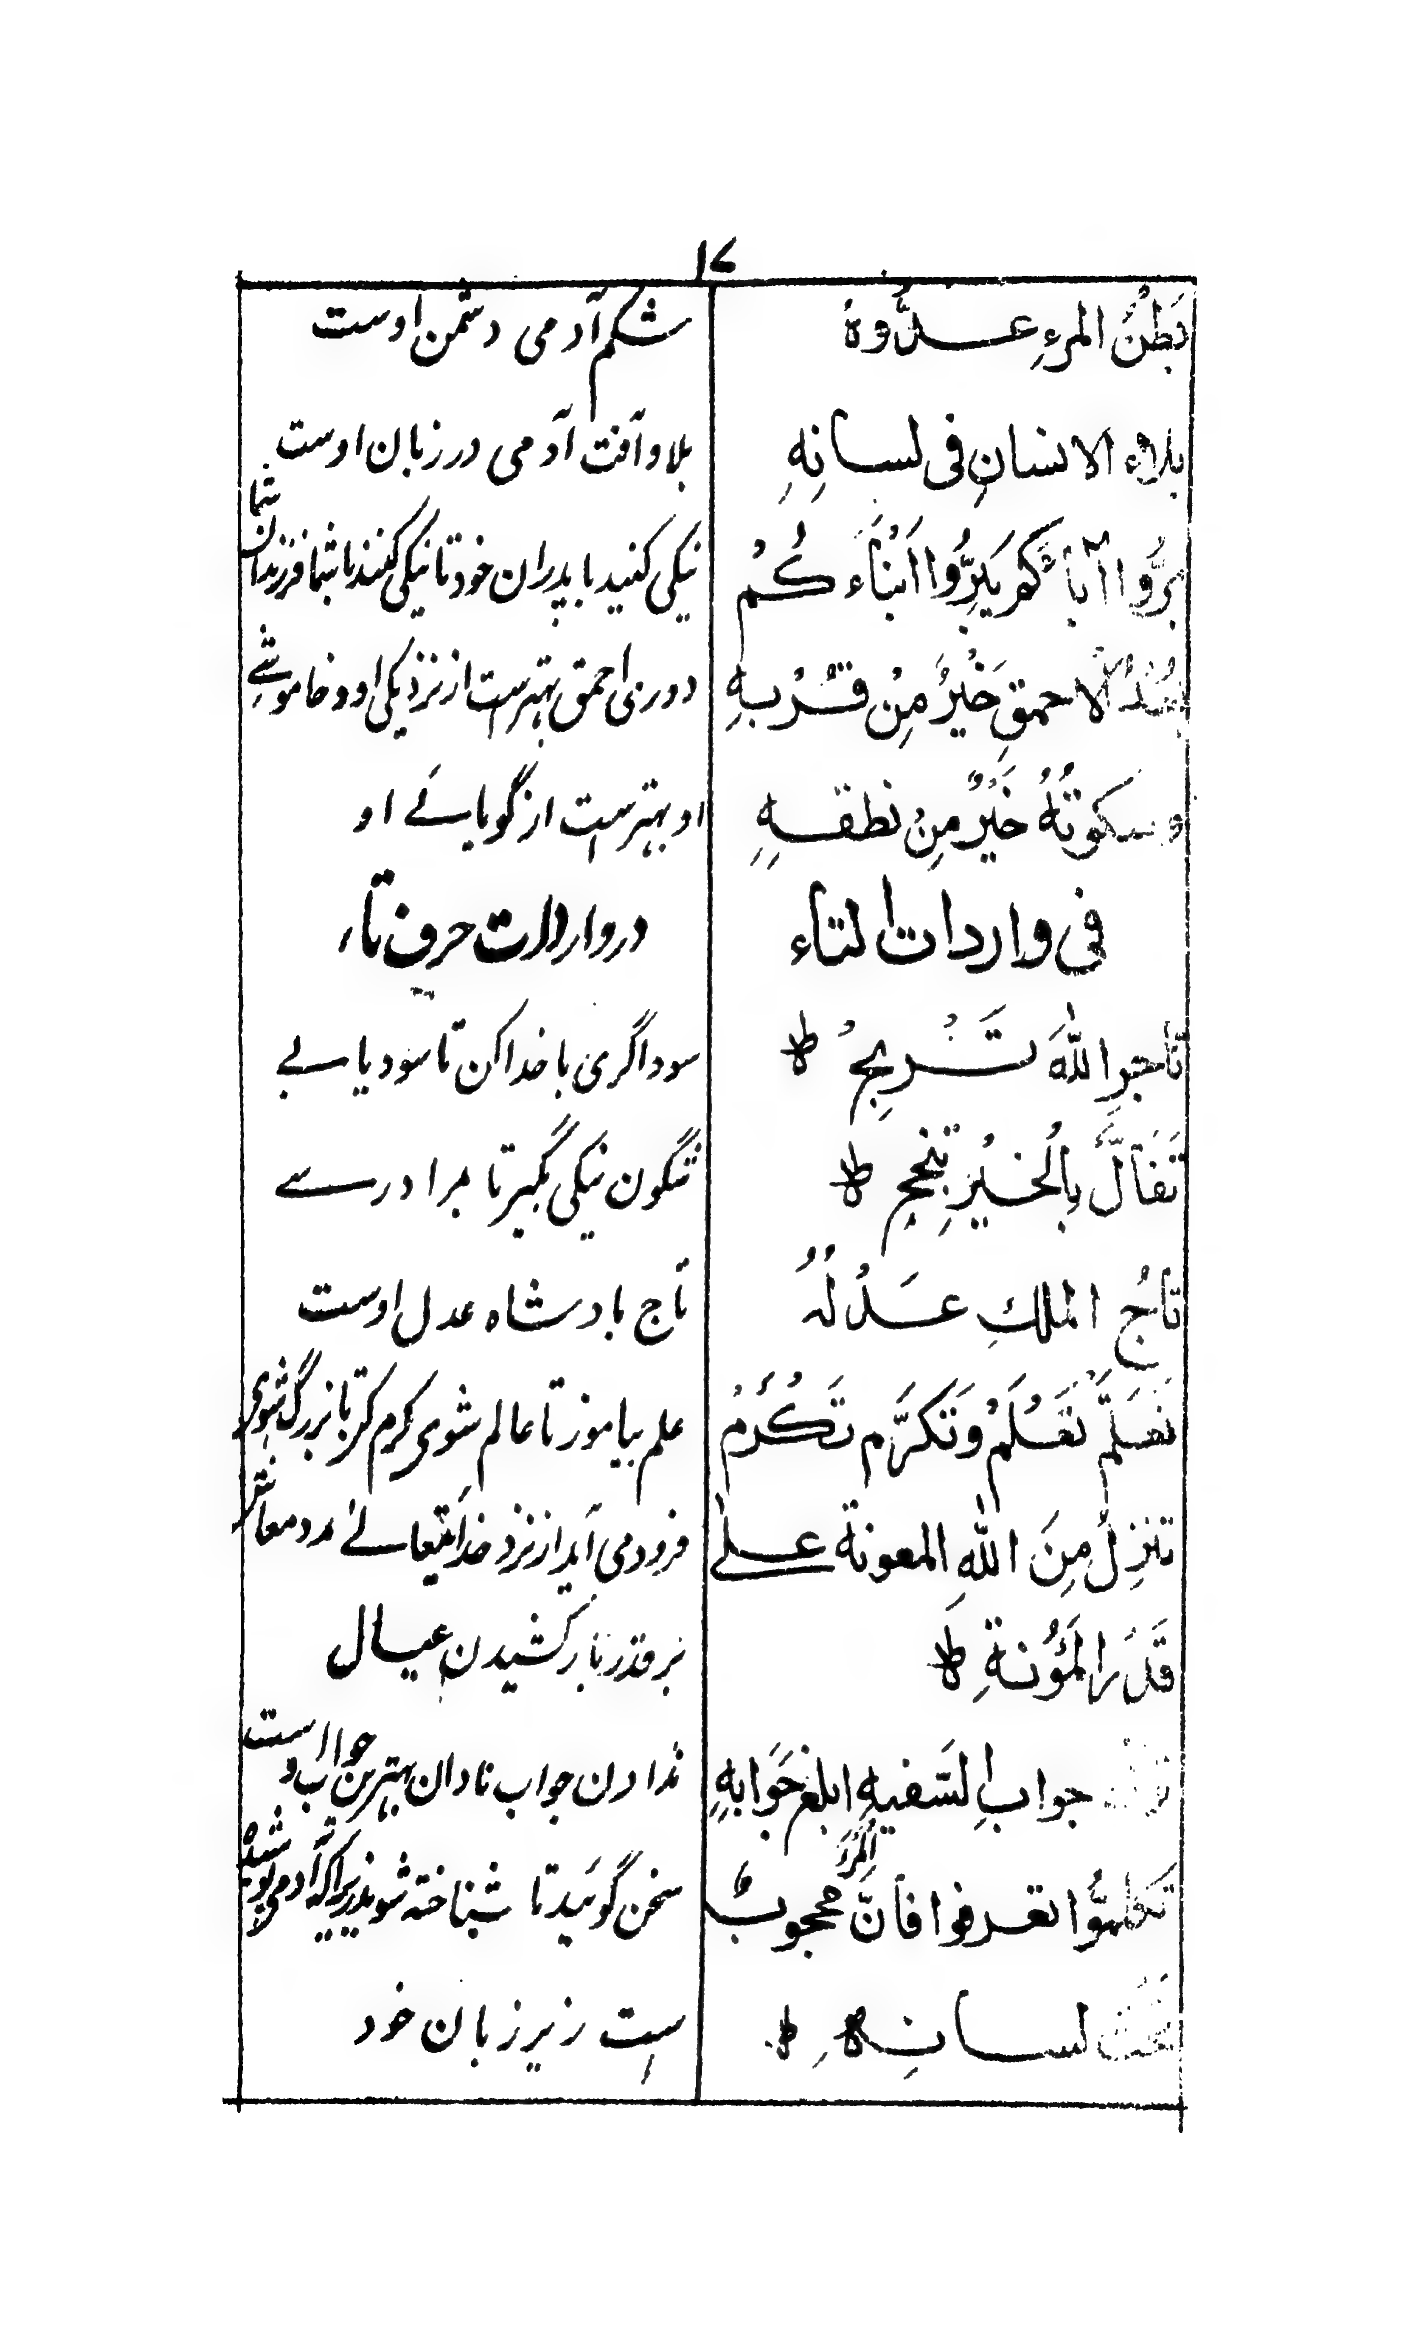 ١٧
بَطْنُ المرءِ عدُّوهُ
شکم آدمی دشمن اوست
بلاء الانسانِ فی لسانِهِ
بلا و آفت آدمی در زبان اوست
برُّوا آبائَكم يَبَرُّوا اَبْنَاءَكُمْ
نیکی کنید با پدران خود تا نیکی کنند با شما فرزندان شما
بُعْدُ الاحمقِ خَيْرٌ مِنْ قُرْبهِ
دوری احمق بهترست از نزدیکی او و خاموشے
وسكوتُهُ خَيْرٌ مِنْ نطقهِ
او بهترست از گویائے او
فی واردات التاء
در واردات حرف تاء
تاجرِ اللهَ تَرْبِحْ ط
سوداگری با خدا کن تا سود یابے
تَفَأَلَّ بِالْخَيْرِ تنجحِ ط
شگون نیکی بگیر تا بمراد رسے
تاجُ الملكِ عَدْلُهُ
تاج بادشاه عدل اوست
تَعَلَّمْ تَعْلَمْ وَتَكَرَّم تَكْرَمْ
علم بیاموز تا عالم شوی کرم کن تا بزرگ شوی
تنزِلُ مِنَ اللهِ المعونة علےٰ
فرود می آید از نزد خدایتعالےٰ مدد معاش
قَدْرِ المَؤُنةِ ط
بر قدر بار کشیدن عیال
جواب السَّفيهِ ابلغ جَوَابهِ
ندادن جواب نادان بهترین جواب او است
تكلمُّوا تعرفوا فأنَّ المرْءَ محجوبٌ
سخن گوئید تا شناخته شوید زیرا که آدمی پوشیده
تَحْتَ لسانِهِ ط
است زیر زبان خود